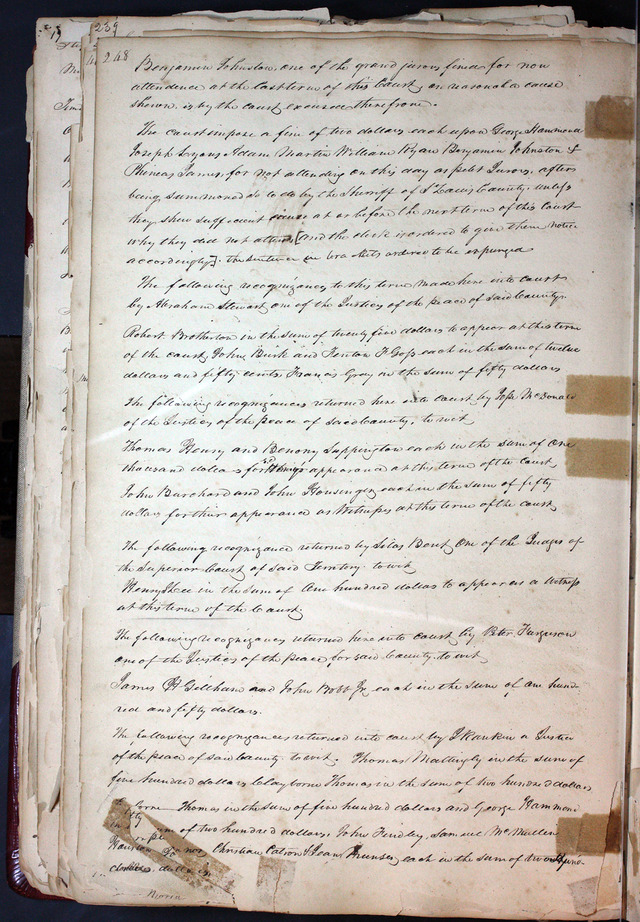 239
248
Benjamin Johnston, one of the grand jurors fined for non
attendence at the last term of this Court on reasonable cause
shewn is by the court excused therefrom.
The court impose a fine of two dollars each upon George Hammond
Joseph Adam Martin William Ryan Benjamin Johnston &
Phineas James for not attending on this day as petit Jurors, after
being summoned so to do by the Sherriff of St Louis County, unless
they shew sufficient cause at or before the next term of this Court
why they did not attend [and the clerk is ordered to give them notice
accordingly]. the sentence in brackets ordered to be expunged
The following recognizances to this term made here into court
by Abraham Stewart one of the Justices of the peace of said County.
Robert Brotherton in the sum of twenty five dollars to appear at this term
of the court, John Burk and Fenton F Goss each in the sum of twelve
dollars and fifty cents Francis Gray in the sum of fifty dollars
The following recognizances returned here into court by Josh McDonald
of the Justices of the peace of said County, to wit
Thomas Henry and Benony Sappington each in the sum of One
thousand dollars for sd Henrys appearance at this term of the Court
John Burchard and John Honsinger each in the sum of fifty
dollars for their appearance as Witness at this term of the court
The following recognizance returned by Silas Bent One of the Judges of
the Superior Court of said Territory to wit
Henry in the sum of One hundred dollars to appear as a Witness
at this term of the Court
The following recognizances returned here into court by Peter Ferguson
one of the Justices of the peace for said County to wit
James H Gillham and John Bobb Jr each in the sum of one hund-
red and fifty dollars.
The following recognizances returned into court by J Rankin a Justice
of the peace of said County to wit. Thomas Mattingly in the sum of
five hundred dollars Clayborne Thomas in the sum of two hundred dollars
Thomas in the sum of five hundred dollars and George Hammond
of two hundred dollars, John Findley, Samuel McMullen
Christian Catron & Isam each in the sum of two